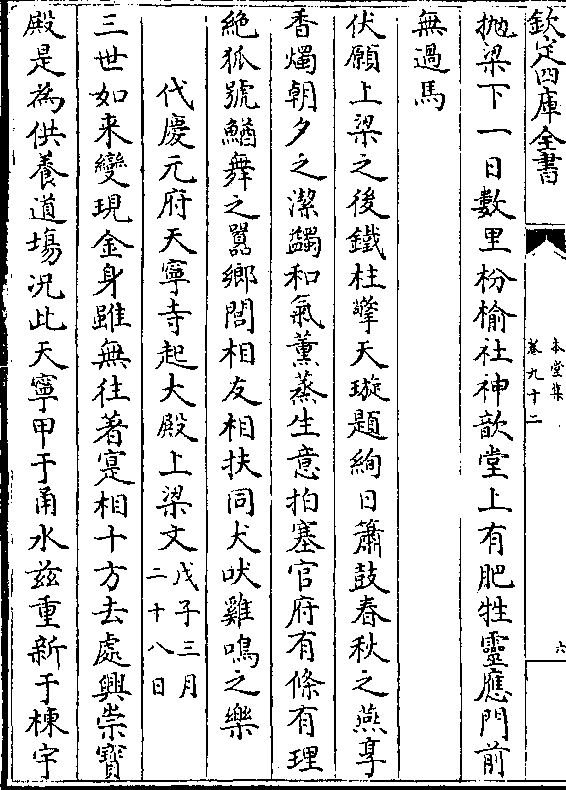 欽定四庫全書
本堂集
卷九十二
六
抛梁下一日數里枌榆社神歆堂上有肥牲靈應門前
無過馬
伏願上梁之後鐵柱擎天璇題絢日簫鼓春秋之燕享
香燭朝夕之潔蠲和氣薰蒸生意拍塞官府有條有理
絶狐號鰌舞之囂鄉閭相友相扶同犬吠雞鳴之樂
代慶元府天寧寺起大殿上梁文戊子三月二十八日
三世如来變現金身雖無往著寔相十方去處興崇寳
殿是為供養道塲况此天寧甲于甬水兹重新于棟宇